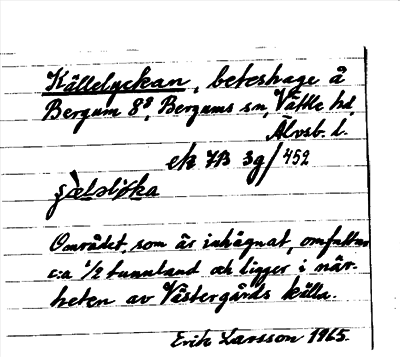 Källelyckan, beteshage å
Bergum 8⁸, Bergums sn, Vättle hd,
Älvsb. l.
ek 7B 3g/452
Området, som är inhägnat, omfattar
c:a 1/2 tunnland och ligger i när-
heten av Västergårds källa.
Erik Larsson 1965.